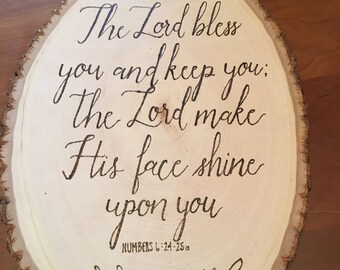 The Lord bless
you and keep you;
The Lord make
His face shine
upon you
NUMBERS 6:24-25a